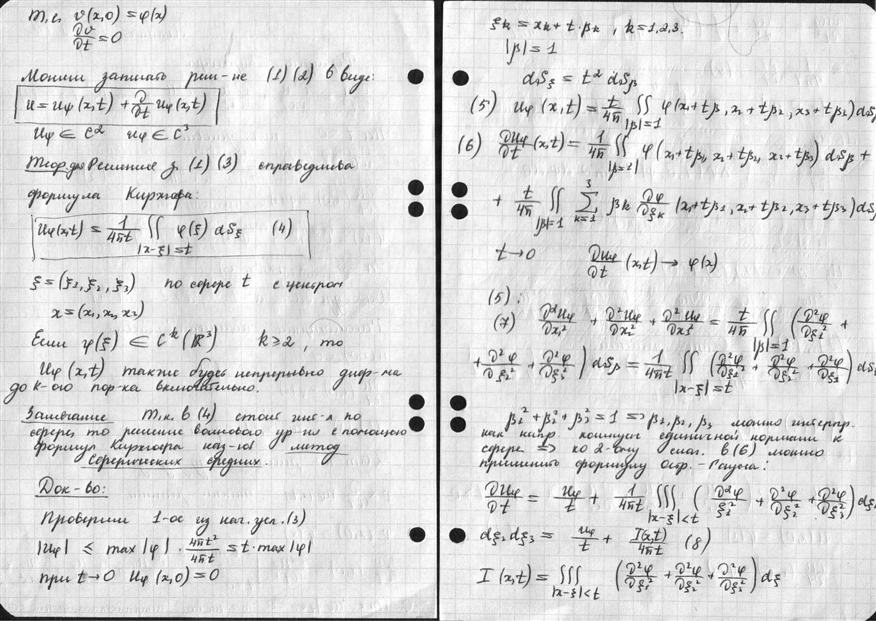 т.е. υ(x,0) = φ(x)
∂υ/∂t = 0
Можем записать реш-ие (1) (2) в виде:
u = uφ (x,t) + ∂/∂t uψ (x,t)
uφ ∈ C² uψ ∈ C³
Теор. Решение з. (1) (3) справедлива
формула Кирхгофа:
uφ(x,t) = 1/4πt ∬|x-ξ|=t φ(ξ) dSξ (4)
ξ = (ξ1, ξ2, ξ3) по сфере t с центром
x = (x1, x2, x3)
Если φ(ξ) ∈ Cᵏ (ℝ³) k ≥ 2, то
uφ (x,t) также будет непрерывно диф-ма
до k-ого пор-ка включительно.
Замечание Т.к. в (4) стоит инт-л по
сфере, то решение волнового ур-ия с помощью
формул Кирхгофа наз-ют метод
сферических средних.
Док-во:
Проверим 1-ое из нач. усл. (3)
|uφ| ≤ max |φ| · 4πt²/4πt = t · max |φ|
при t→0 uφ (x,0) = 0
ξk = xk + t·βk, k = 1,2,3.
|β| = 1
dSξ = t² dSβ
(5) uφ (x,t) = t/4π ∬|β|=1 φ(x1+tβ1, x2+tβ2, x3+tβ2) dS
(6) ∂uφ/∂t (x,t) = 1/4π ∬|β|=1 φ(x1+tβ1, x2+tβ2, x3+tβ3) dSβ +
+ t/4π ∬|β|=1 Σ³k=1 βk ∂φ/∂ξk (x1+tβ1, x2+tβ2, x3+tβ3) dS
t→0 ∂uφ/∂t (x,t) → φ(x)
(5):
(7) ∂²uφ/∂x1² + ∂²uφ/∂x2² + ∂²uφ/∂x3² = t/4π ∬|β|=1 (∂²φ/∂ξ1² +
+ ∂²φ/∂ξ2² + ∂²φ/∂ξ3²) dSβ = 1/4πt ∬|x-ξ|=t (∂²φ/∂ξ1² + ∂²φ/∂ξ2² + ∂²φ/∂ξ3²) dS
β1² + β2² + β3² = 1 => β1, β2, β3 можно интерпр.
как напр. косинусы единичной нормали к
сфере => ко 2-ому слаг. в (6) можно
применить формулу Остр.-Гаусса:
∂uφ/∂t = uφ/t + 1/4πt ∭|x-ξ|<t (∂²φ/ξ1² + ∂²φ/∂ξ2² + ∂²φ/∂ξ3²) dξ
dξ2 dξ3 = uφ/t + I(x,t)/4πt (8)
I (x,t) = ∭|x-ξ|<t (∂²φ/∂ξ1² + ∂²φ/∂ξ2² + ∂²φ/∂ξ3²) dξ